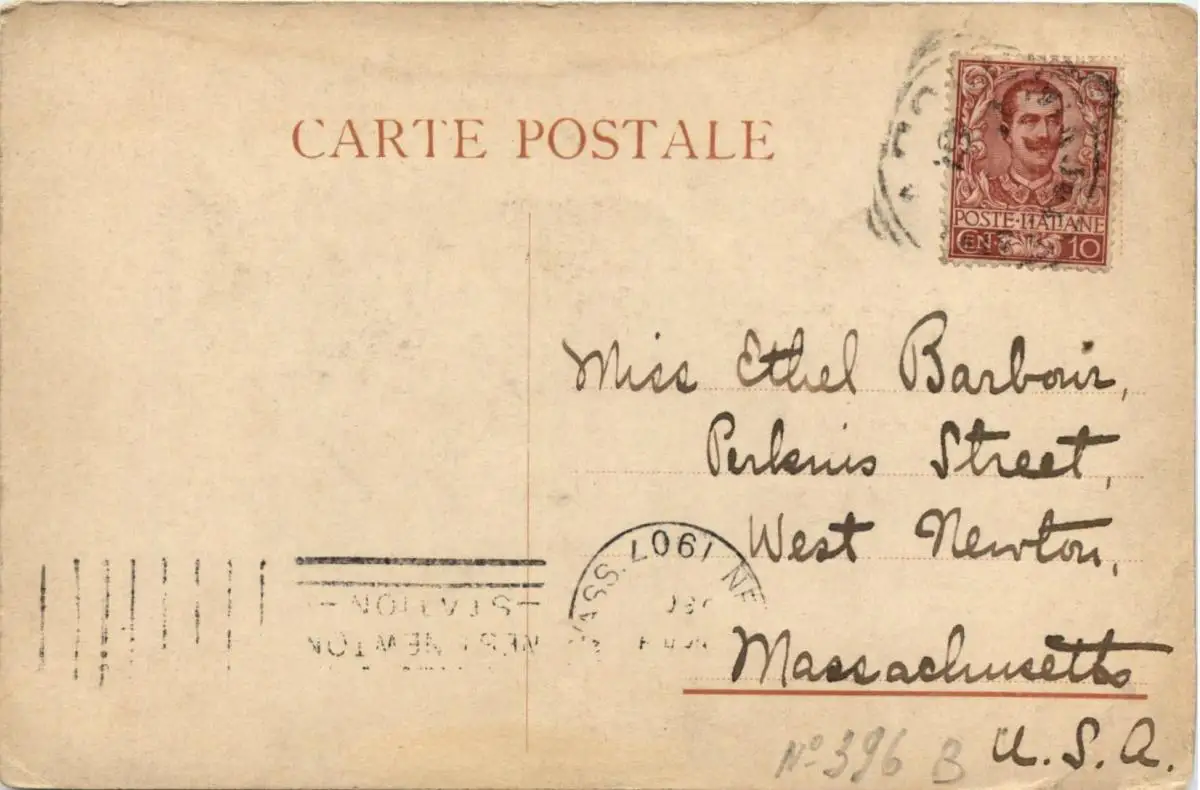 CARTE POSTALE
POSTE·ITALIANE
CENT. 10
Miss Ethel Barbour,
Perkins Street,
West Newton,
Massachusetts
U.S.A.
1907
WEST NEWTON
STATION
Nº 396 B